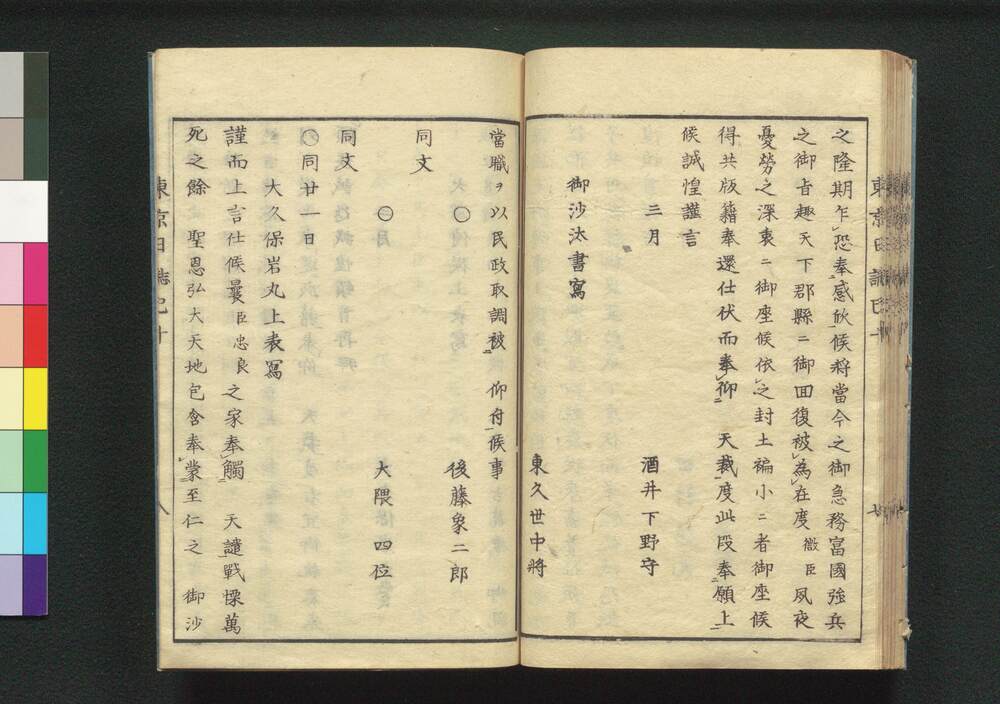 之隆期乍恐奉感欣候將當今之御急務富國強兵
之御旨趣天下郡縣ニ御回復被為在度微臣夙夜
憂勞之深衷ニ御座候依之封土褊小ニ者御座候
得共版籍奉還仕伏而奉仰ニ 天裁度此段奉願上
候誠惶謹言
三月 酒井下野守
御沙汰書寫
東久世中將
當職ヲ以民政取調被ニ 仰付候事
〇 後藤象二郎
同文
〇月 大隈四位
同文
〇同廿一日
大久保岩丸上表寫
謹而上言仕候曩臣忠良之家奉觸 天譴戰慄萬
死之餘聖恩弘大天地包含奉蒙至仁之 御沙
東京日誌巳十 八